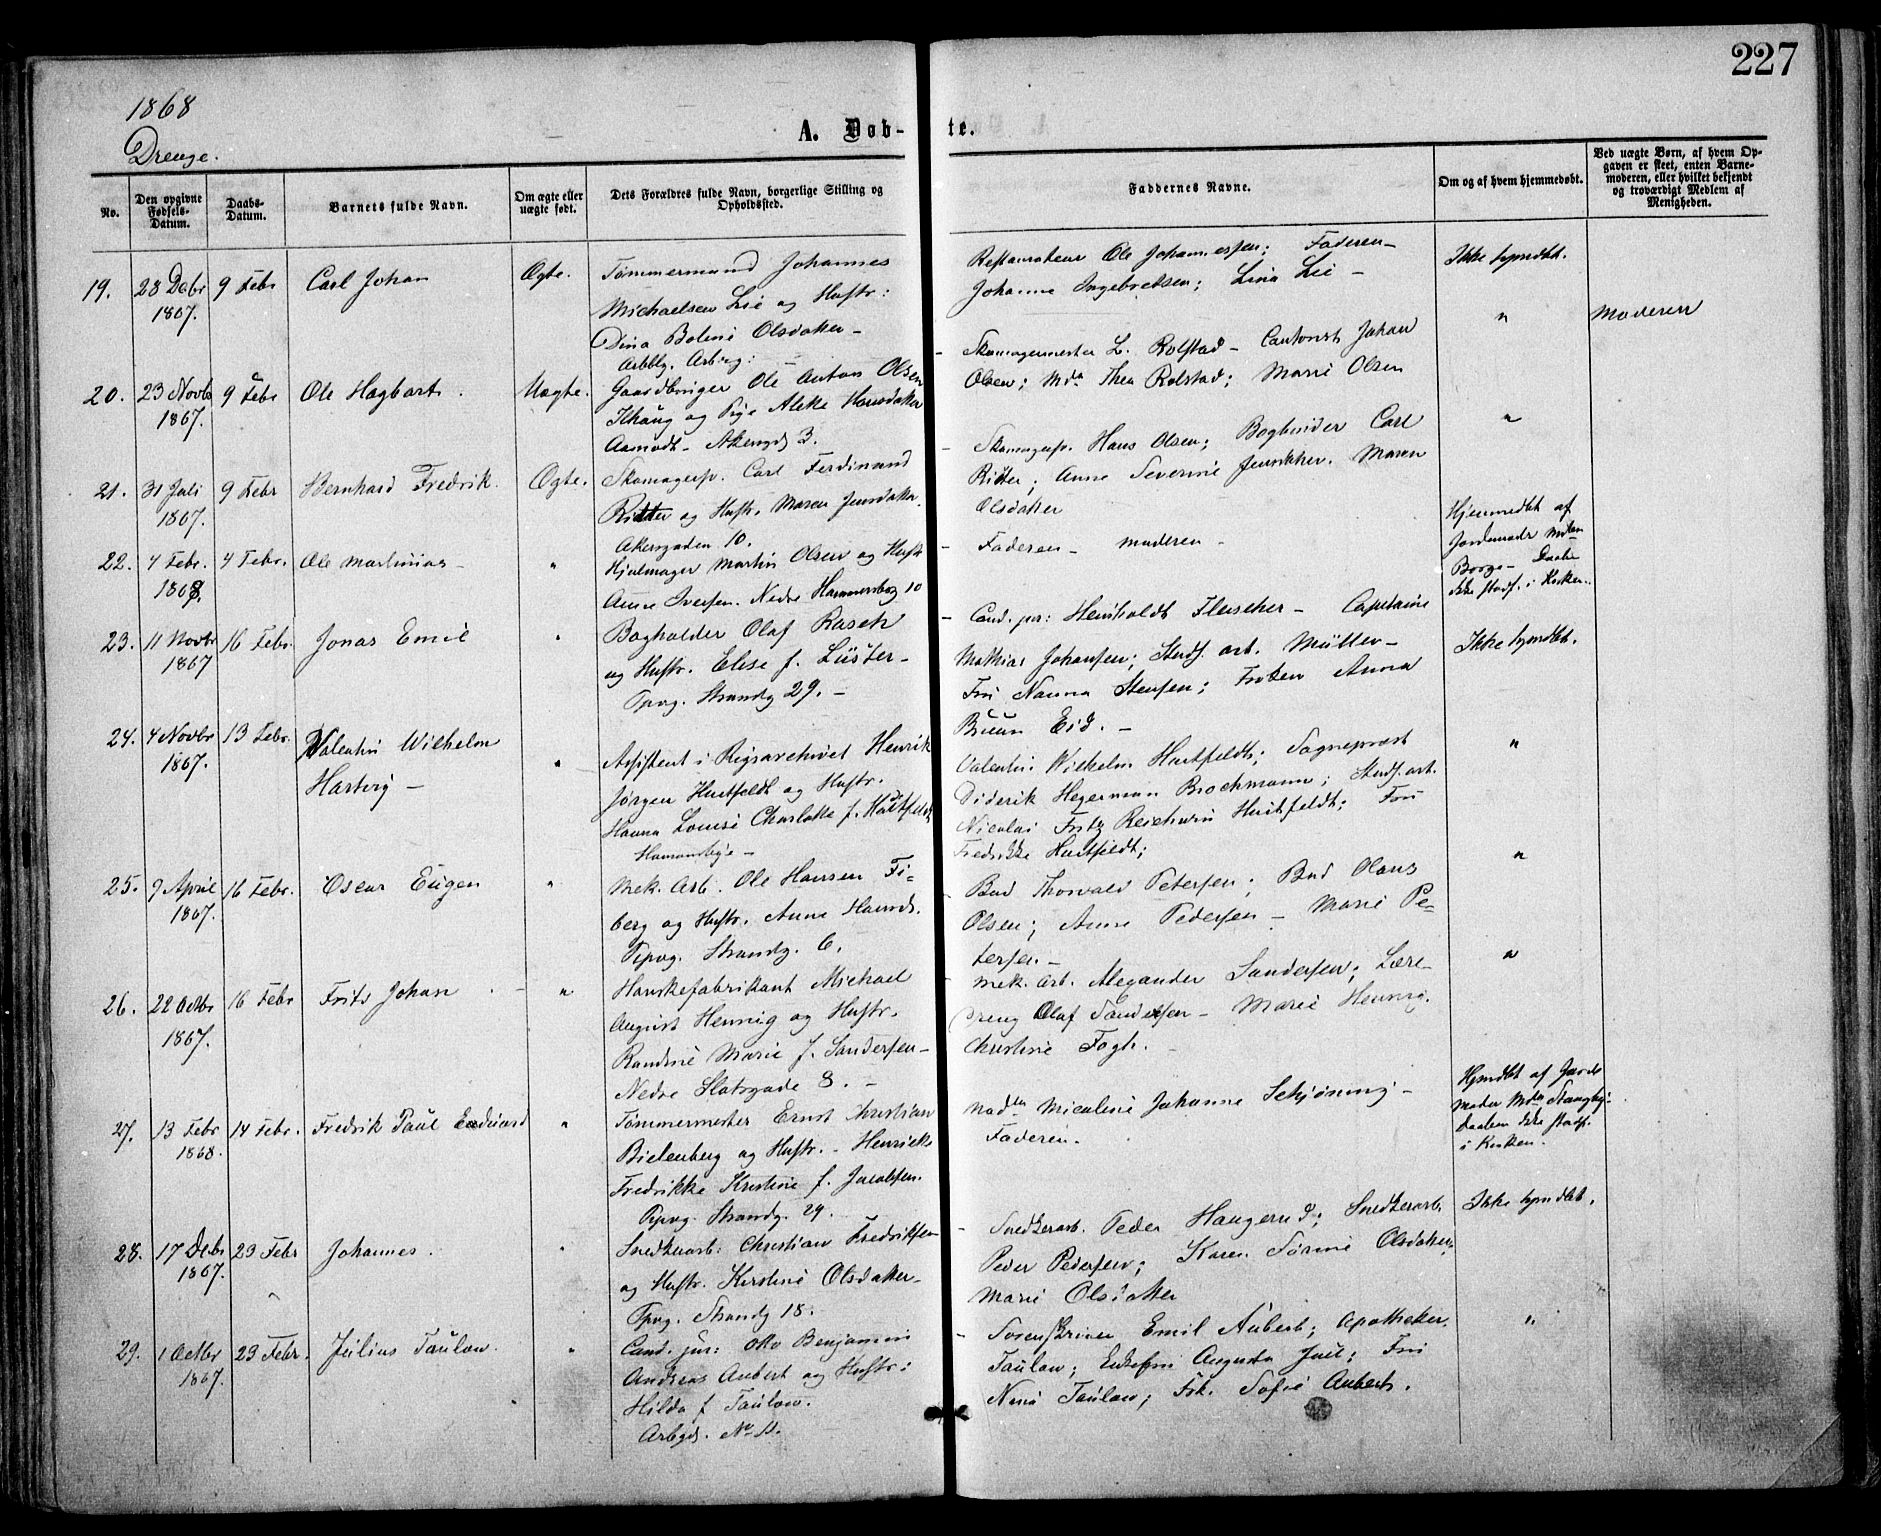 227
1868
Drenge.
A. Døb- te.
No.
Den opgivne Fødsels-Datum.
Daabs-Datum.
Barnets fulde Navn.
Om ægte eller uægte født.
Dets Forældres fulde Navn, borgerlige Stilling og Opholdssted.
Faddernes Navne.
Om og af hvem hjemmedøbt.
Ved uægte Børn, af hvem Opgaven er skeet, enten Barnemoderen, eller hvilket bekjendt og troværdigt Medlem af Menigheden.
19. 28 Decbr 1867. 9 Febr Carl Johan Ægte.
Tømmermand Johannes
Michaelsen Lie og Hustr:
Dina Boline Olsdatter
Restaurateur Ole Johannessen; Faderen
Johanne Ingebretsen; Lina Lie
Ikke hjmdbt.
20. 23 Novbr 1867. 9 Febr Ole Hagbart. Uægte.
Gaardbruger Ole Anton Olsen
Ilhaug og Pige Aleke Hansdatter
Aamodt Akersgd 3.
Skomagermester L. Rolstad Cantonist Johan
Olsen; Mda Thea Rolstad; Marie Olsen
" Moderen
21. 31 Juli 1867. 9 Febr Bernhard Fredrik. Ægte.
Skomagersv. Carl Ferdinand
Ritter og Hustr. Maren Jensdatter.
Akersgaden 10.
Skomagersv. Hans Olsen; Bogbinder Carl
Ritter; Anne Severine Maren
Olsdatter
"
22. 4 Febr. 1868. 4 Febr. Ole Martinius "
Hjulmager Martin Olsen og Hustr
Anne Iversen. Nedre Hammersbog 10
Faderen Moderen
Hjemmedbt af
Jordemodr Mdm
Borge Daabe
ikke stadf. i Kirken.
23. 11 Novbr 1867 16 Febr. Jonas Emil "
Bogholder Olaf Rasch
og Hustr. Elise f. Lüster
Ppvg. Strandg 29.
Cand. jur: Fleischer Capitaine
Mathias Johansen; Stud. art. Müller
Fru Nanna Stensen; Frøken Anna
Bruun Eid.
Ikke hjmdbt.
24. 4 Novbr 1867. 13 Febr. Valentin Wilhelm
Hartvig "
Assistent i Rigsarchivet Henrik
Jørgen Huitfeldt og Hustr.
Hanna Louise Charlotte f. Huitfeldt
Homansby
Valentin Wilhelm Huitfeldt; Sognepræst
Diderik Hegerman Brochmann; Stud. art.
Nicolai Fritz Reichwein Huitfeldt; Fru
Fredrikke Huitfeldt;
"
25. 9 April 1867. 16 Febr. Oscar Eugen "
Mek. Arb. Ole Hansen Fi-
berg og Hustr. Anne Hansd.
Pipvg. Strandg. 6.
Bud Thorvald Petersen; Bud Olaus
Olsen; Anne Pedersen Marie Pe-
tersen
"
26. 22 Octbr 1867. 16 Febr Frits Johan "
Hanskefabrikant Michael
August Hennig og Hustr.
Randine Marie f. Sandersen
Nedre Slotsgade 8.
Mek. Arb. Alexander Sandersen; Lære-
dreng Olaf Sandersen Marie Hennig.
Christine Fogh.
"
27. 13 Febr 1868. 14 Febr. Fredrik Paul Eduard "
Tømmermester Ernst Christian
Bielenberg og Hustr. Henriette
Fredrikke Kristine f. Jacobsen.
Pipvg. Strandg. 29.
Madm Micaline Johanne Schjøning
Faderen.
Hjmdbt af Jorde
moder Mdm Stangby:
daaben ikke stadf.
i Kirken.
28. 17 Decbr 1867. 23 Febr Johannes. "
Snedkerarb: Christian Fredriksen
og Hustr. Kirstine Olsdatter
Ppvg. Strandg 18.
Snedkerarb. Peder Haugerud; Snedkerarb
Peder Pedersen; Karen Sørine Olsdatter,
Marie Olsdatter
Ikke hjmdbt.
29. 1 Octbr 1867. 23 Febr. Julius Taulow. "
Cand. jur: Otto Benjamin
Andreas Aubert og Hustr:
Hilda f Taulow.
Arbgd. No 11.
Sorenskriver Emil Aubert; Apotheker
Taulow; Enkefru Augusta Juul; Fru
Nina Taulow; Frk. Sofie Aubert.
"